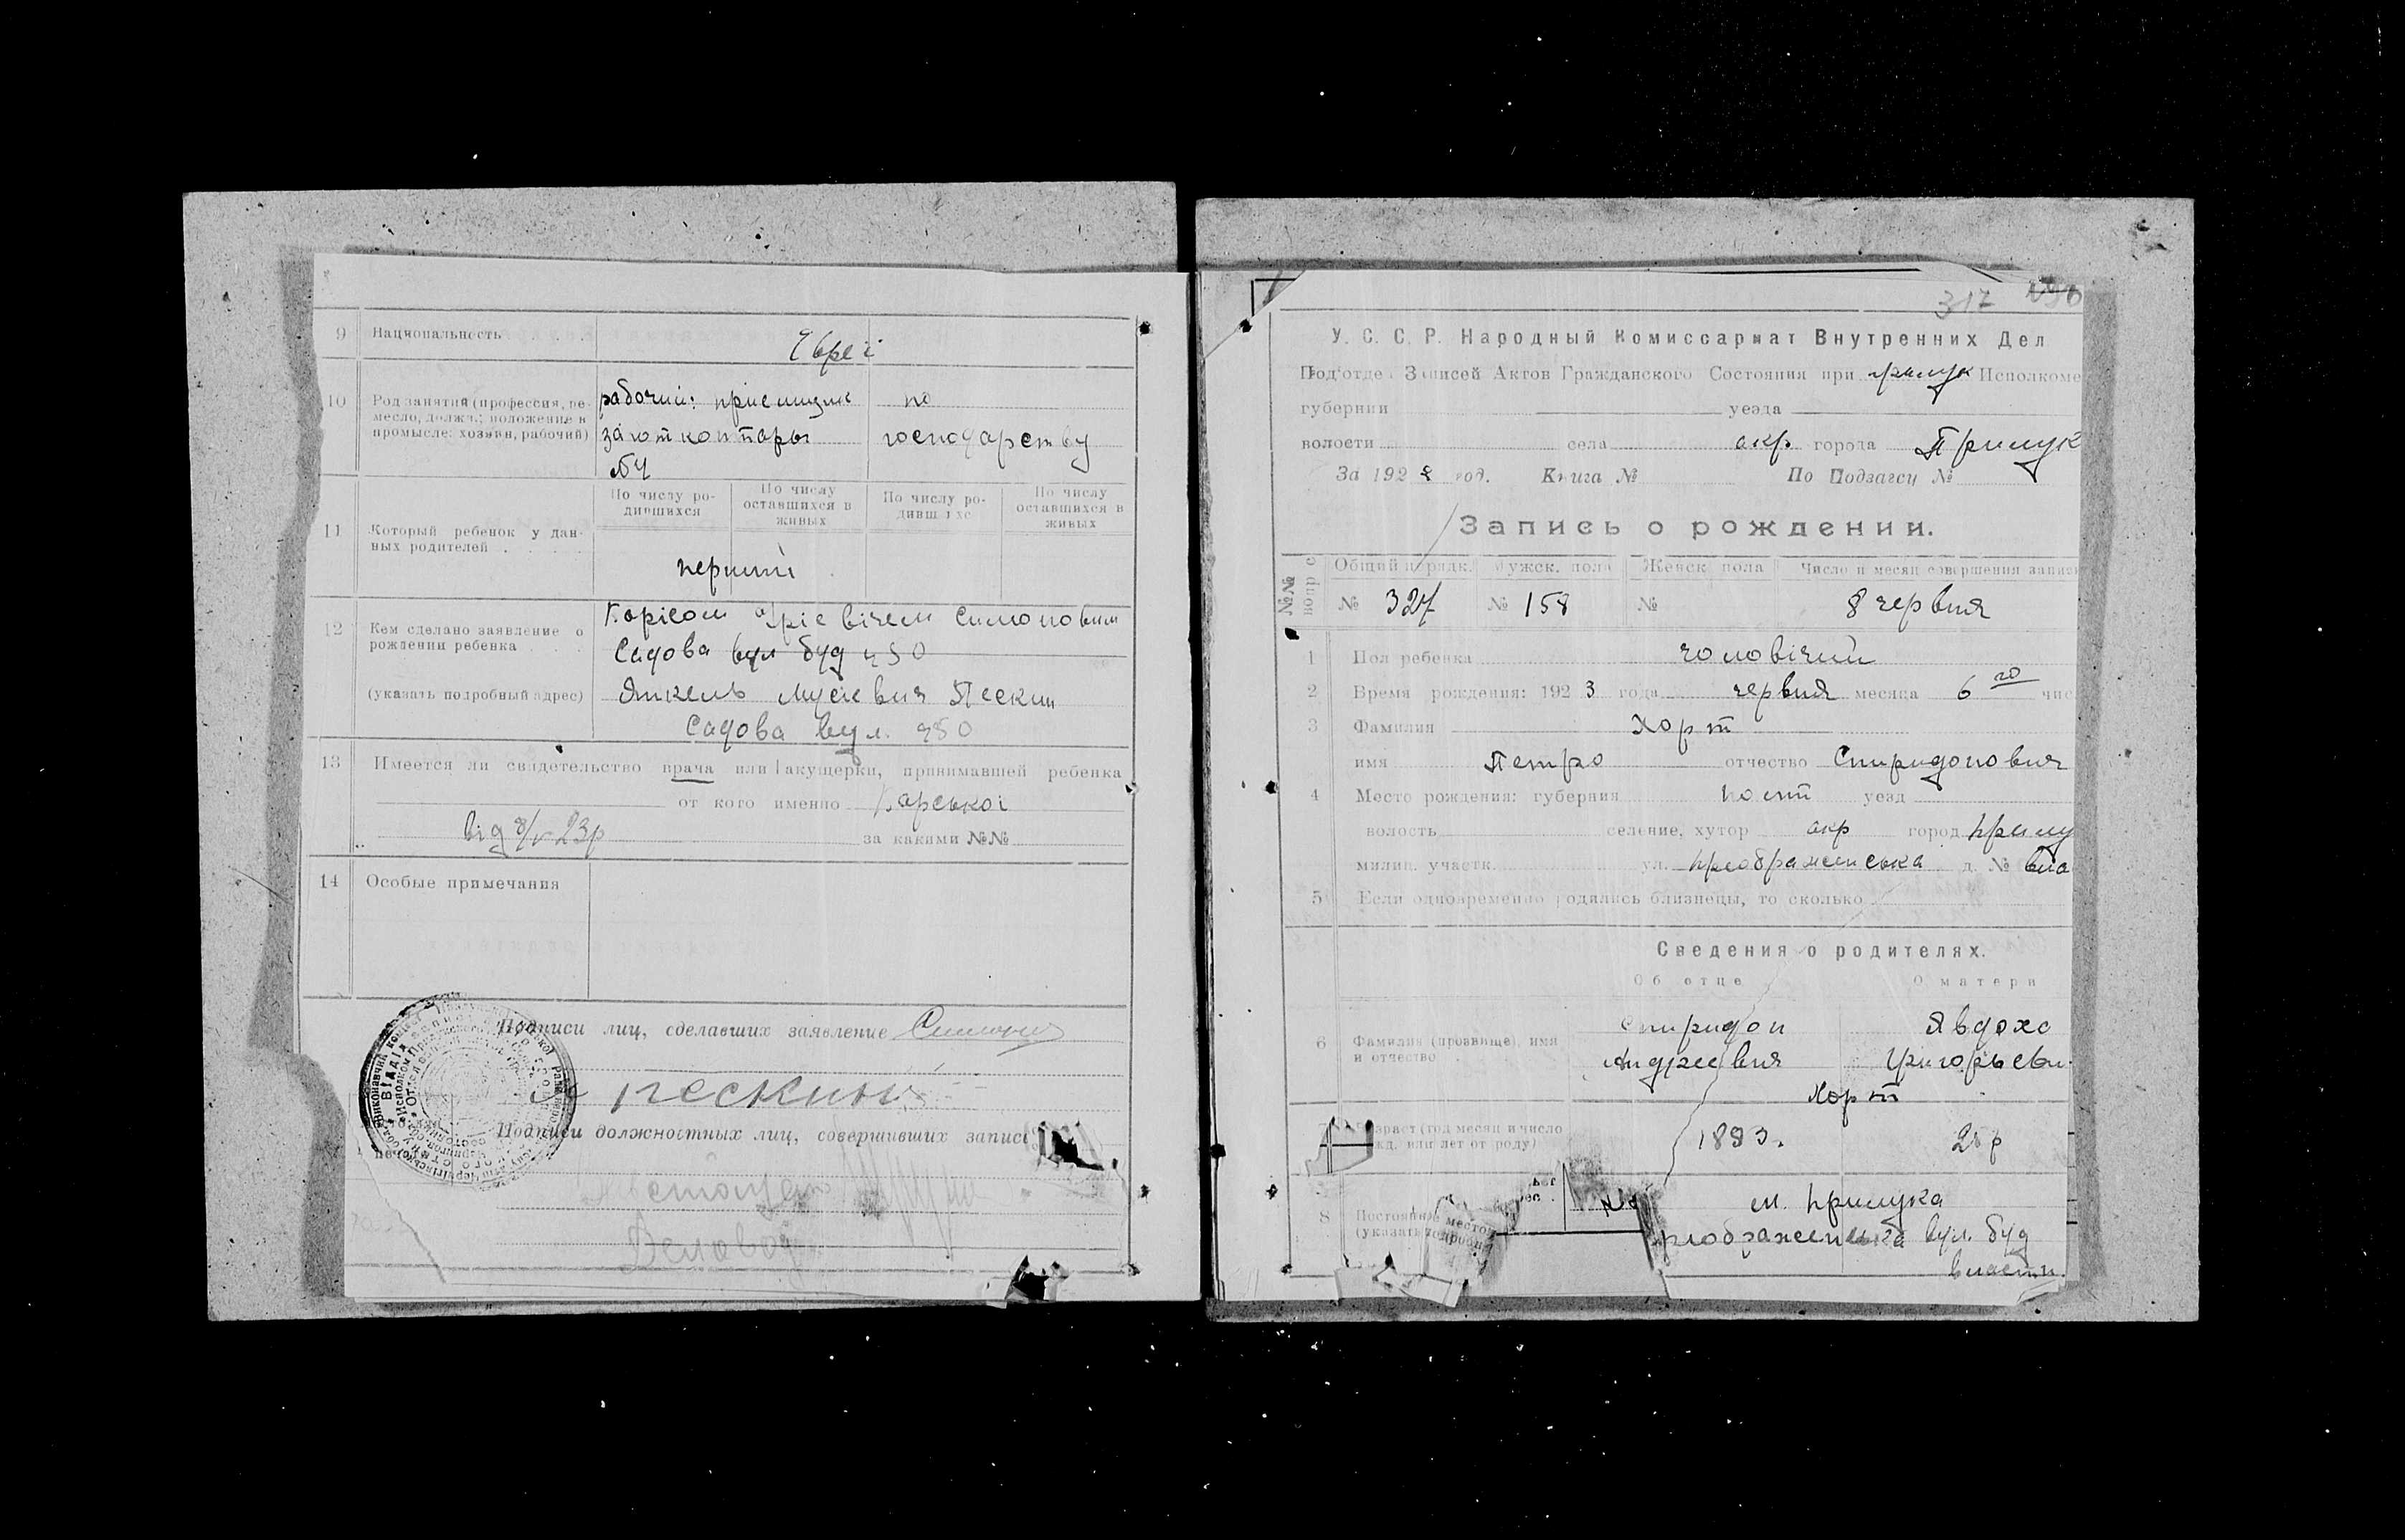 9 Национальность
Євреї
10 Род занятий (профессия, ре-
месло, должн.; положение в
промысле: хозяин, рабочий)
рабочий: приємщик
заготконтори
№4
по
господарству
11 Который ребенок у дан-
ных родителей
По числу ро-
дившихся
По числу
оставшихся в
живых
По числу ро-
дивш ихс
По числу
оставшихся в
живых
перший
12 Кем сделано заявление о
рождении ребенка
(указать подробный адрес)
Симоновим
Садова вул буд ч50
Янкель Мусієвич Пескин
Садова вул. ч50
13 Имеется ли свидетельство врача или акушерки, принимавшей ребенка
от кого именно Карської
від 8/V 23р за какими №№
14 Особые примечания
Подписи лиц, сделавших заявление
Пескин
Подписи должностных лиц, совершивших запись
Діловод
317
У. С. С. Р. Народный Комиссариат Внутренних Дел
Подотде Записей Актов Гражданского Состояния при Прилук Исполкоме
губернии уезда
волости села окр. города Прилук
За 192 год. Книга № По Подзагсу №
Запись о рождении.
№№ вопрос
Общий порядк. Мужск. пола Женск. пола Число и месяц совершения запис
№ 327 № 158 № 8 червня
1 Пол ребенка чоловічий
2 Время рождения: 1923 года червня месяца 6го чис
3 Фамилия Хорт
имя Петро отчество Спиридонович
4 Место рождения: губерния уезд
волость селение, хутор окр город Прилу
милиц. участк. ул. Преображенська д. № вла
5 Если одновременно родились близнецы, то сколько
Сведения о родителях.
Об отце О матери
6 Фамилия (прозвище), имя
и отчество
Спиридон
Андрієвич
Явдоха
Григорьєви
Хорт
озраст (год месяц и число
жд. или лет от роду)
1893. 25р
8 Постоянное место
(указать подробны
м. Прилука
реображенська вул. буд
власти.